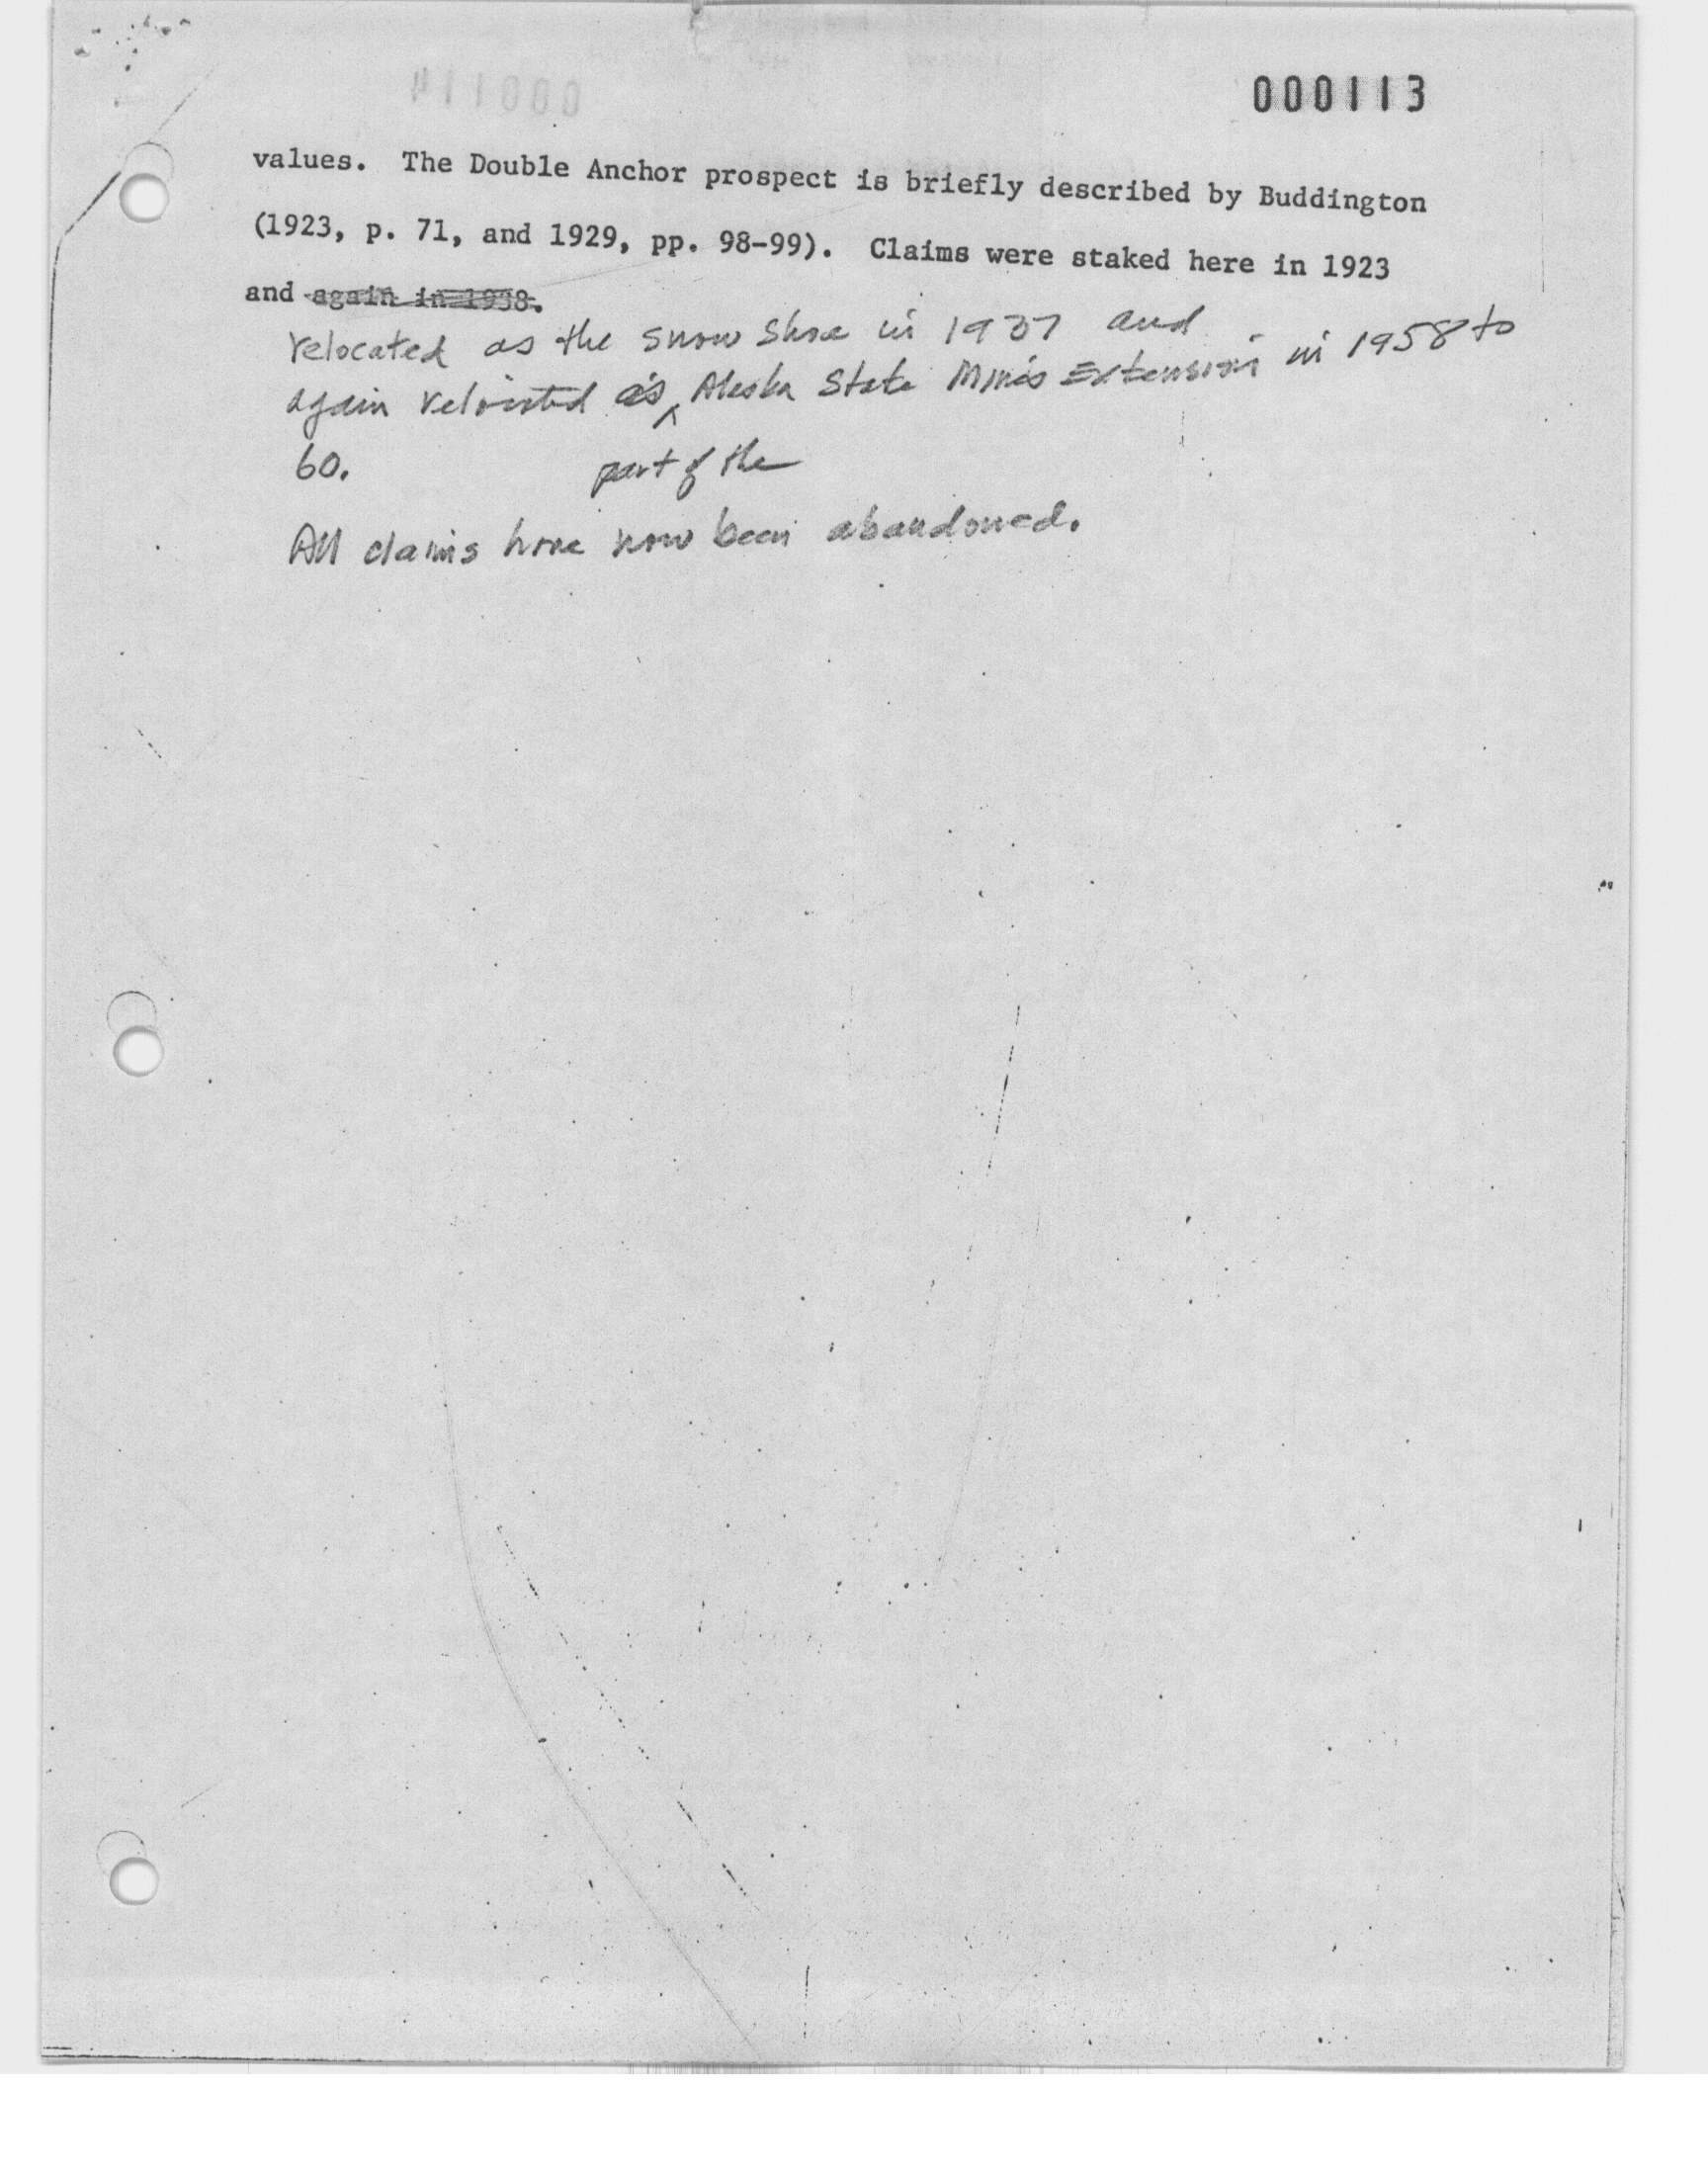 000113
values. The Double Anchor prospect is briefly described by Buddington
(1923, p. 71, and 1929, pp. 98-99). Claims were staked here in 1923
and again in 1938.
relocated as the Snow Shoe in 1937 and
again relocated as ^ Alaska State Mines Extension in 1958 to
60. part of the
All claims have now been abandoned.